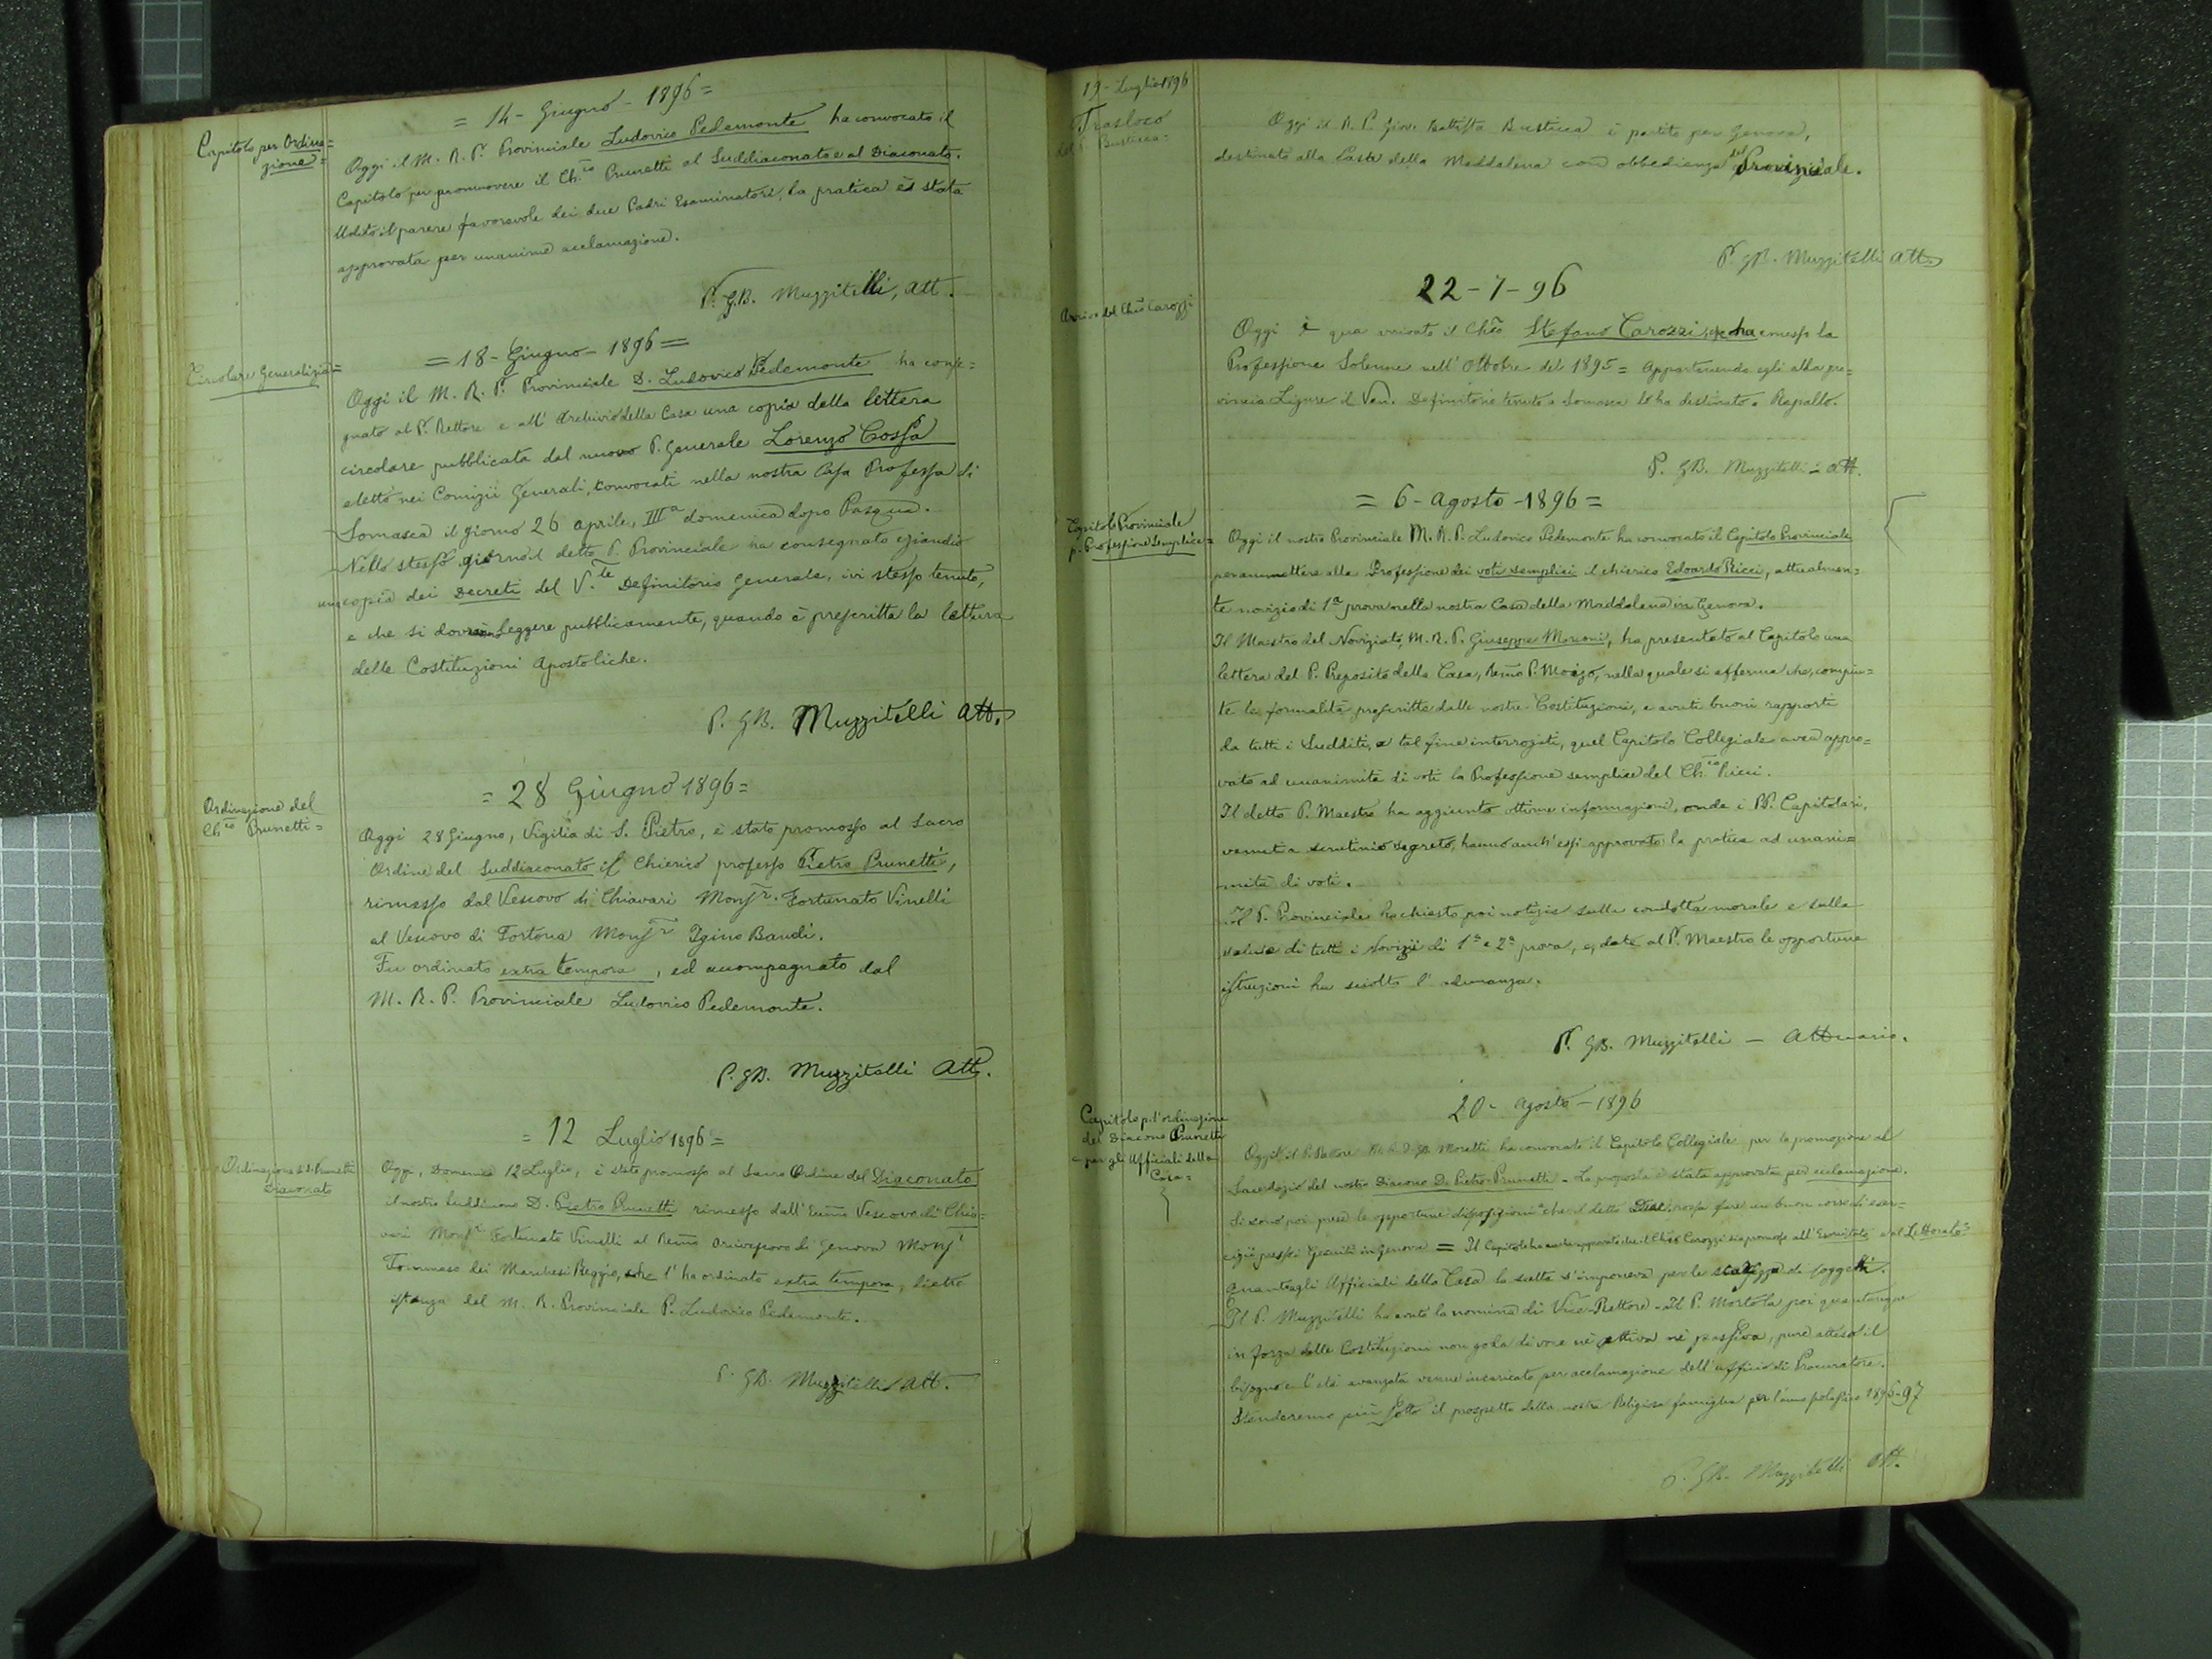 = 14 - Giugno - 1896 =
Capitolo per Ordina=
zione =
Oggi il M. R. P. Provinciale Ludovico Pedemonte ha convocato il
Capitolo per promuovere il Ch.co Prunetti al Suddiaconato e al Diaconato.
Udito il parere favorevole dei due Padri Esaminatori, la pratica è stata
approvata per unanime acclamazione.
P. G.B. Muzzitelli, Att.
= 18 - Giugno - 1896 =
Circolare Generalizia =
Oggi il M. R. P. Provinciale D. Ludovico Pedemonte ha conse=
gnato al P. Rettore e all' Archivio della Casa una copia della lettera
circolare pubblicata dal nuovo P. Generale Lorenzo Cossa
eletto nei Comizii Generali, convocati nella nostra Casa Professa di
Somasca il giorno 26 aprile, IIIa domenica dopo Pasqua.
Nello stesso giorno il detto P. Provinciale ha consegnato eziandio
una copia dei Decreti del V.le Definitorio Generale, ivi stesso tenuto,
e che si dovran leggere pubblicamente, quando è prescritta la lettura
delle Costituzioni Apostoliche.
P. GB. Muzzitelli Att.
= 28 Giugno 1896 =
Ordinazione del
Ch.co Prunetti =
Oggi 28 Giugno, Vigilia di S. Pietro, è stato promosso al Sacro
Ordine del Suddiaconato il Chierico professo Pietro Prunetti,
rimesso dal Vescovo di Chiavari Monsr. Fortunato Vinelli
al Vescovo di Tortona Monsr Igino Bandi.
Fu ordinato extra tempora, ed accompagnato dal
M. R. P. Provinciale Ludovico Pedemonte.
P. GB. Muzzitelli Att.
= 12 Luglio 1896 =
Ordinazione di D. Prunetti
Diaconato
Oggi, Domenica 12 Luglio, è stato promosso al Sacro Ordine del Diaconato
il nostro Suddiacono D. Pietro Prunetti rimesso dall' Ecc͠mo Vescovo di Chia=
vari Monsr Fortunato Vinelli al Rev͠mo Arcivescovo di Genova Monsr
Tommaso dei Marchesi Reggio, che l' ha ordinato extra tempora, dietro
istanza del M. R. Provinciale P. Ludovico Pedemonte.
P. GB. Muzzitelli Att.
19 - Luglio 1896
Trasloco
del P. Bustica =
Oggi il R. P. Giov. Battista Bustica è partito per Genova,
destinato alla Casa della Maddalena con obbedienza del Provinciale.
P. GB. Muzzitelli Att.
22 - 7 - 96
Arrivo del Ch.co Carozzi
Oggi è qua arrivato il Ch.co Stefano Carozzi, che ha emesso la
Professione Solenne nell' Ottobre del 1895 = Appartenendo egli alla pro=
vincia Ligure il Ven. Definitorio tenuto a Somasca lo ha destinato a Rapallo.
P. GB. Muzzitelli - Att.
= 6 - Agosto - 1896 =
Capitolo Provinciale
p. Professione Semplice =
Oggi il nostro Provinciale M. R. P. Ludovico Pedemonte ha convocato il Capitolo Provinciale
per ammettere alla Professione dei voti semplici il chierico Edoardo Ricci, attualmen=
te novizio di 1a prova nella nostra Casa della Maddalena in Genova.
Il Maestro del Noviziato, M. R. P. Giuseppe Marconi, ha presentato al Capitolo una
lettera del P. Preposito della Casa, Rev͠mo P. Moizo, nella quale si afferma che, compiu=
te le formalità prescritte dalle nostre Costituzioni, e avuti buoni rapporti
da tutti i Sudditi, a tal fine interrogati, quel Capitolo Collegiale avea appro=
vato ad unanimità di voti la Professione semplice del Ch.co Ricci.
Il detto P. Maestro ha aggiunto ottime informazioni, onde i PP. Capitolari,
venuti a scrutinio segreto, hanno anch' essi approvato la pratica ad unani=
mità di voti.
Il P. Provinciale ha chiesto poi notizie sulla condotta morale e sulla
salute di tutti i Novizii di 1a e 2a prova, e, date al P. Maestro le opportune
istruzioni ha sciolto l' adunanza.
P. GB. Muzzitelli - Attuario.
20 - Agosto - 1896
Capitolo p. l'ordinazione
del Diacono Prunetti
e per gli Ufficiali della
Casa =
Oggi il P. Rettore M. R. D. GB. Moretti ha convocato il Capitolo Collegiale per la promozione al
Sacerdozio del nostro Diacono D. Pietro Prunetti - La proposta è stata approvata per acclamazione.
Si sono poi prese le opportune disposizioni che il detto Diac. possa fare un buon corso di eser=
cizii presso i Gesuiti in Genova = Il Capitolo ha anche approvato che il Ch.co Carozzi sia promosso all' Esorcistato e al Lettorato =
Quanto agli Ufficiali della Casa la scelta s' imponeva per la scarsezza di soggetti.
Il P. Muzzitelli ha avuto la nomina di Vice-Rettore - Il P. Mortola poi quantunque
in forza delle Costituzioni non goda di voce nè attiva nè passiva, pure atteso il
bisogno e l' età avanzata venne incaricato per acclamazione dell' ufficio di Procuratore.
Stenderemo più sotto il prospetto della nostra Religiosa famiglia per l'anno scolastico 1896-97
P. GB. Muzzitelli Att.